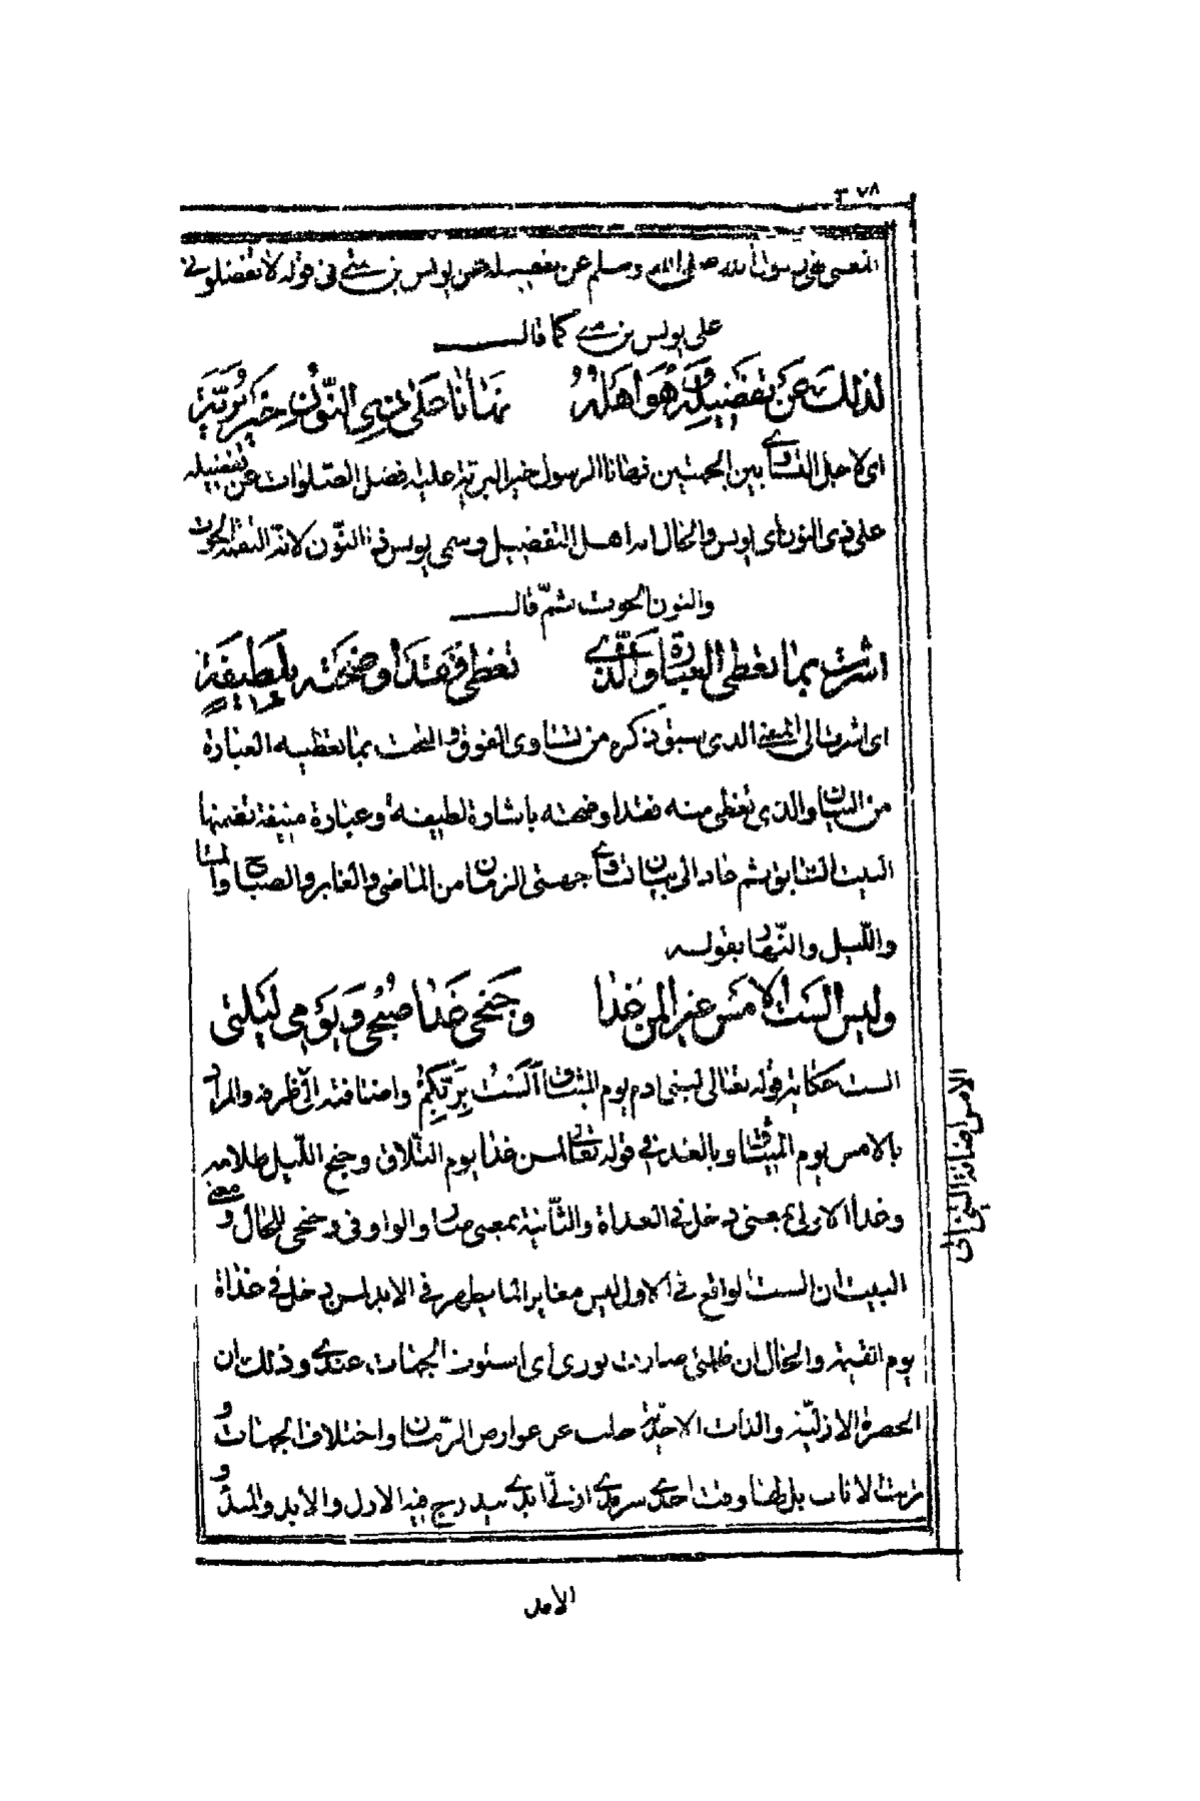 ٣٧٨
رسول الله صلى الله وسلم عن تفضيله عن يونس بن متى فى قوله لا تفضلونى
على يونس بن متى كما قال
لذلك عن تفضيله وهو اهله نهانا على ذى النون خير برية
اى لاجل التساوى بين الجهتين نهانا الرسول خير البرية عليه فضل الصلوات عن تفضيله
على ذى النون اى يونس والحال انه اهل التفضيل وسمى يونس ذا النون لانه التقمه الحوت
والنون الحوت ثمّ قال
اشرت بما تعطى العبارة والّذى تغطى فقد اوضحته بلطيفة
اى اشرت الى المعنى الذى سبق ذكره من تساوى الفوق والتحت بما تعطيه العبارة
من البيان والذى تغطى منه فقد اوضحته باشارة لطيفة وعبارة منيفة تضمنها
البيت السابق ثم عاد الى بيان تساوى جهتى الزمان من الماضى والغابر والصباح والمساء
والليل والنّهار بقوله
وليس الست الامس غير المن غدا وجنحى غدا صبحى ويومى ليلتى
الست حكاية قوله تعالى لبنى ادم يوم الميثاق ألست بربّكم واضافته الى ظرفه والمراد
بالامس يوم الميثاق وبالغد فى قوله تعالى لمن غدا يوم التّلاق وجنح اللّيل ظلامه
وغدا الاولى بمعنى دخل فى الغداة والثّانية بمعنى صار والواو فى وجنحى للحال ومعنى
البيت ان الست لواقع فى الاول ليس مغايرا لما يظهر فى الابد لمن دخل فى غداة
يوم القيمة والحال ان ظلمتى صارت نورى اى استوت الجهات عندى وذلك ان
الحضرة الازليّة والذات الاحديّة خلت عن عوارض الزّمان واختلاف الجهات و
بل لها وقت احدى سرمدى ازلىّ ابدى يندرج فيه الازل والابد والمبدؤ
الامس اضافة
الامد